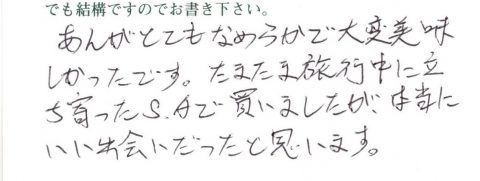 でも結構ですのでお書き下さい。
あんがとてもなめらかで大変美味
しかったです。たまたま旅行中に立
ち寄ったS.Aで買いましたが、本当に
いい出会いだったと思います。